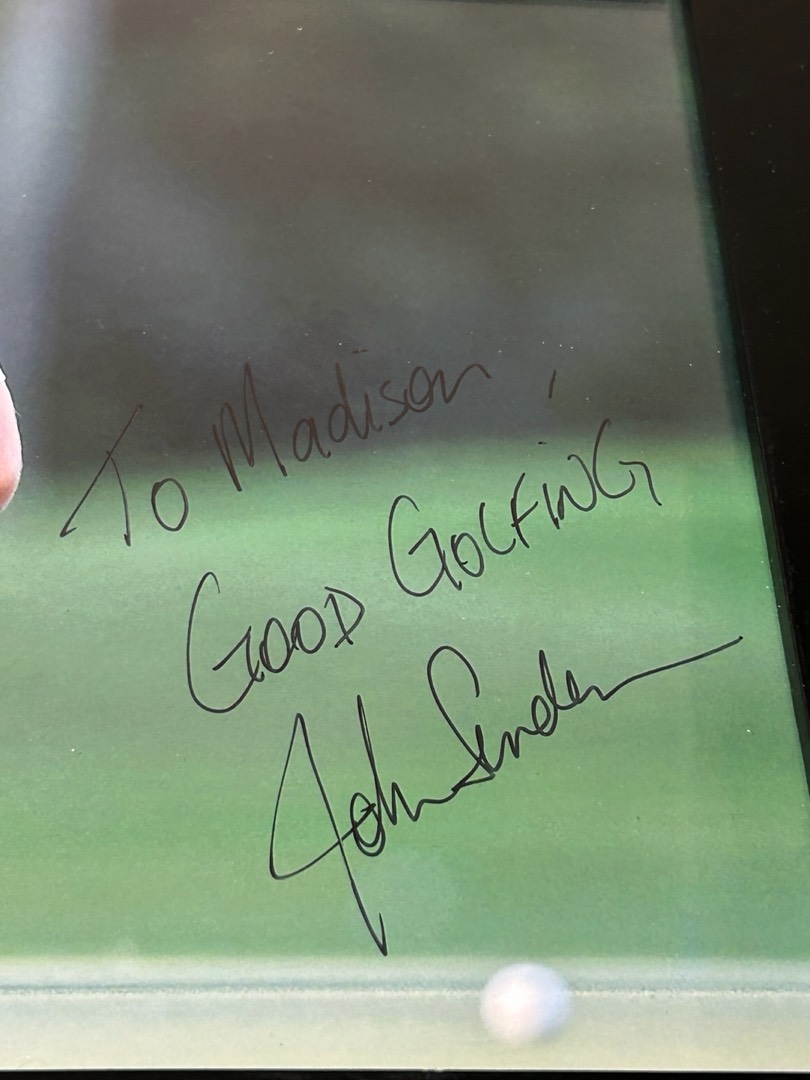 To Madison,
GOOD GOLFING
John Senden